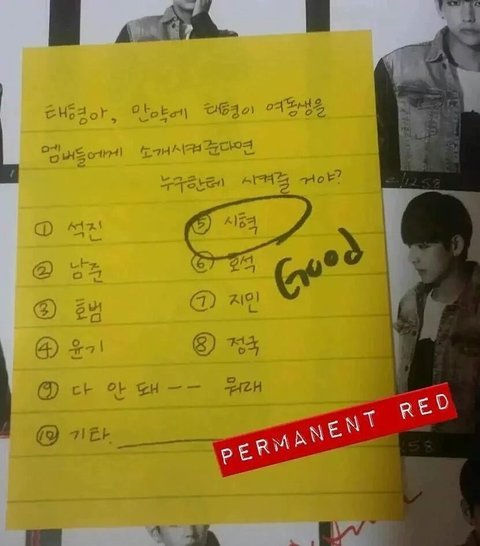 태형아, 만약에 태형이 여동생을
멤버들에게 소개시켜준다면
누구한테 시켜줄 거야?
① 석진
② 남준
③ 호범
④ 윤기
⑤ 시혁
⑥ 호석
⑦ 지민
⑧ 정국
⑨ 다 안돼-- 뭐래
⑩ 기타
Good
PERMANENT RED